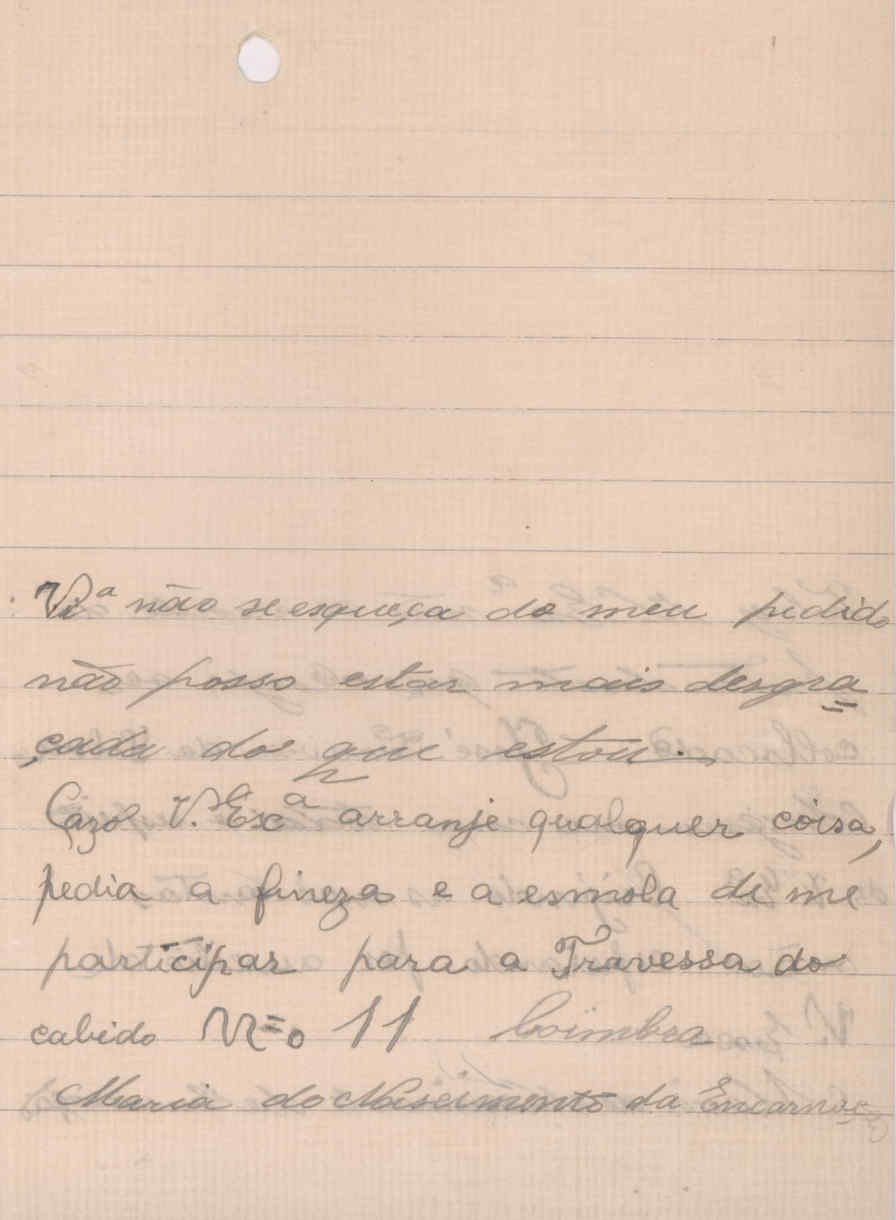 Vª não se esqueça do meu pedido
não posso estar mais desgra=
çada do que estou.
Cazo V. Excª arranje qualquer coisa,
pedia a fineza e a esmola de me
participar para a Travessa do
cabido N=o 11 Coimbra
Maria do Nascimento da Encarnação